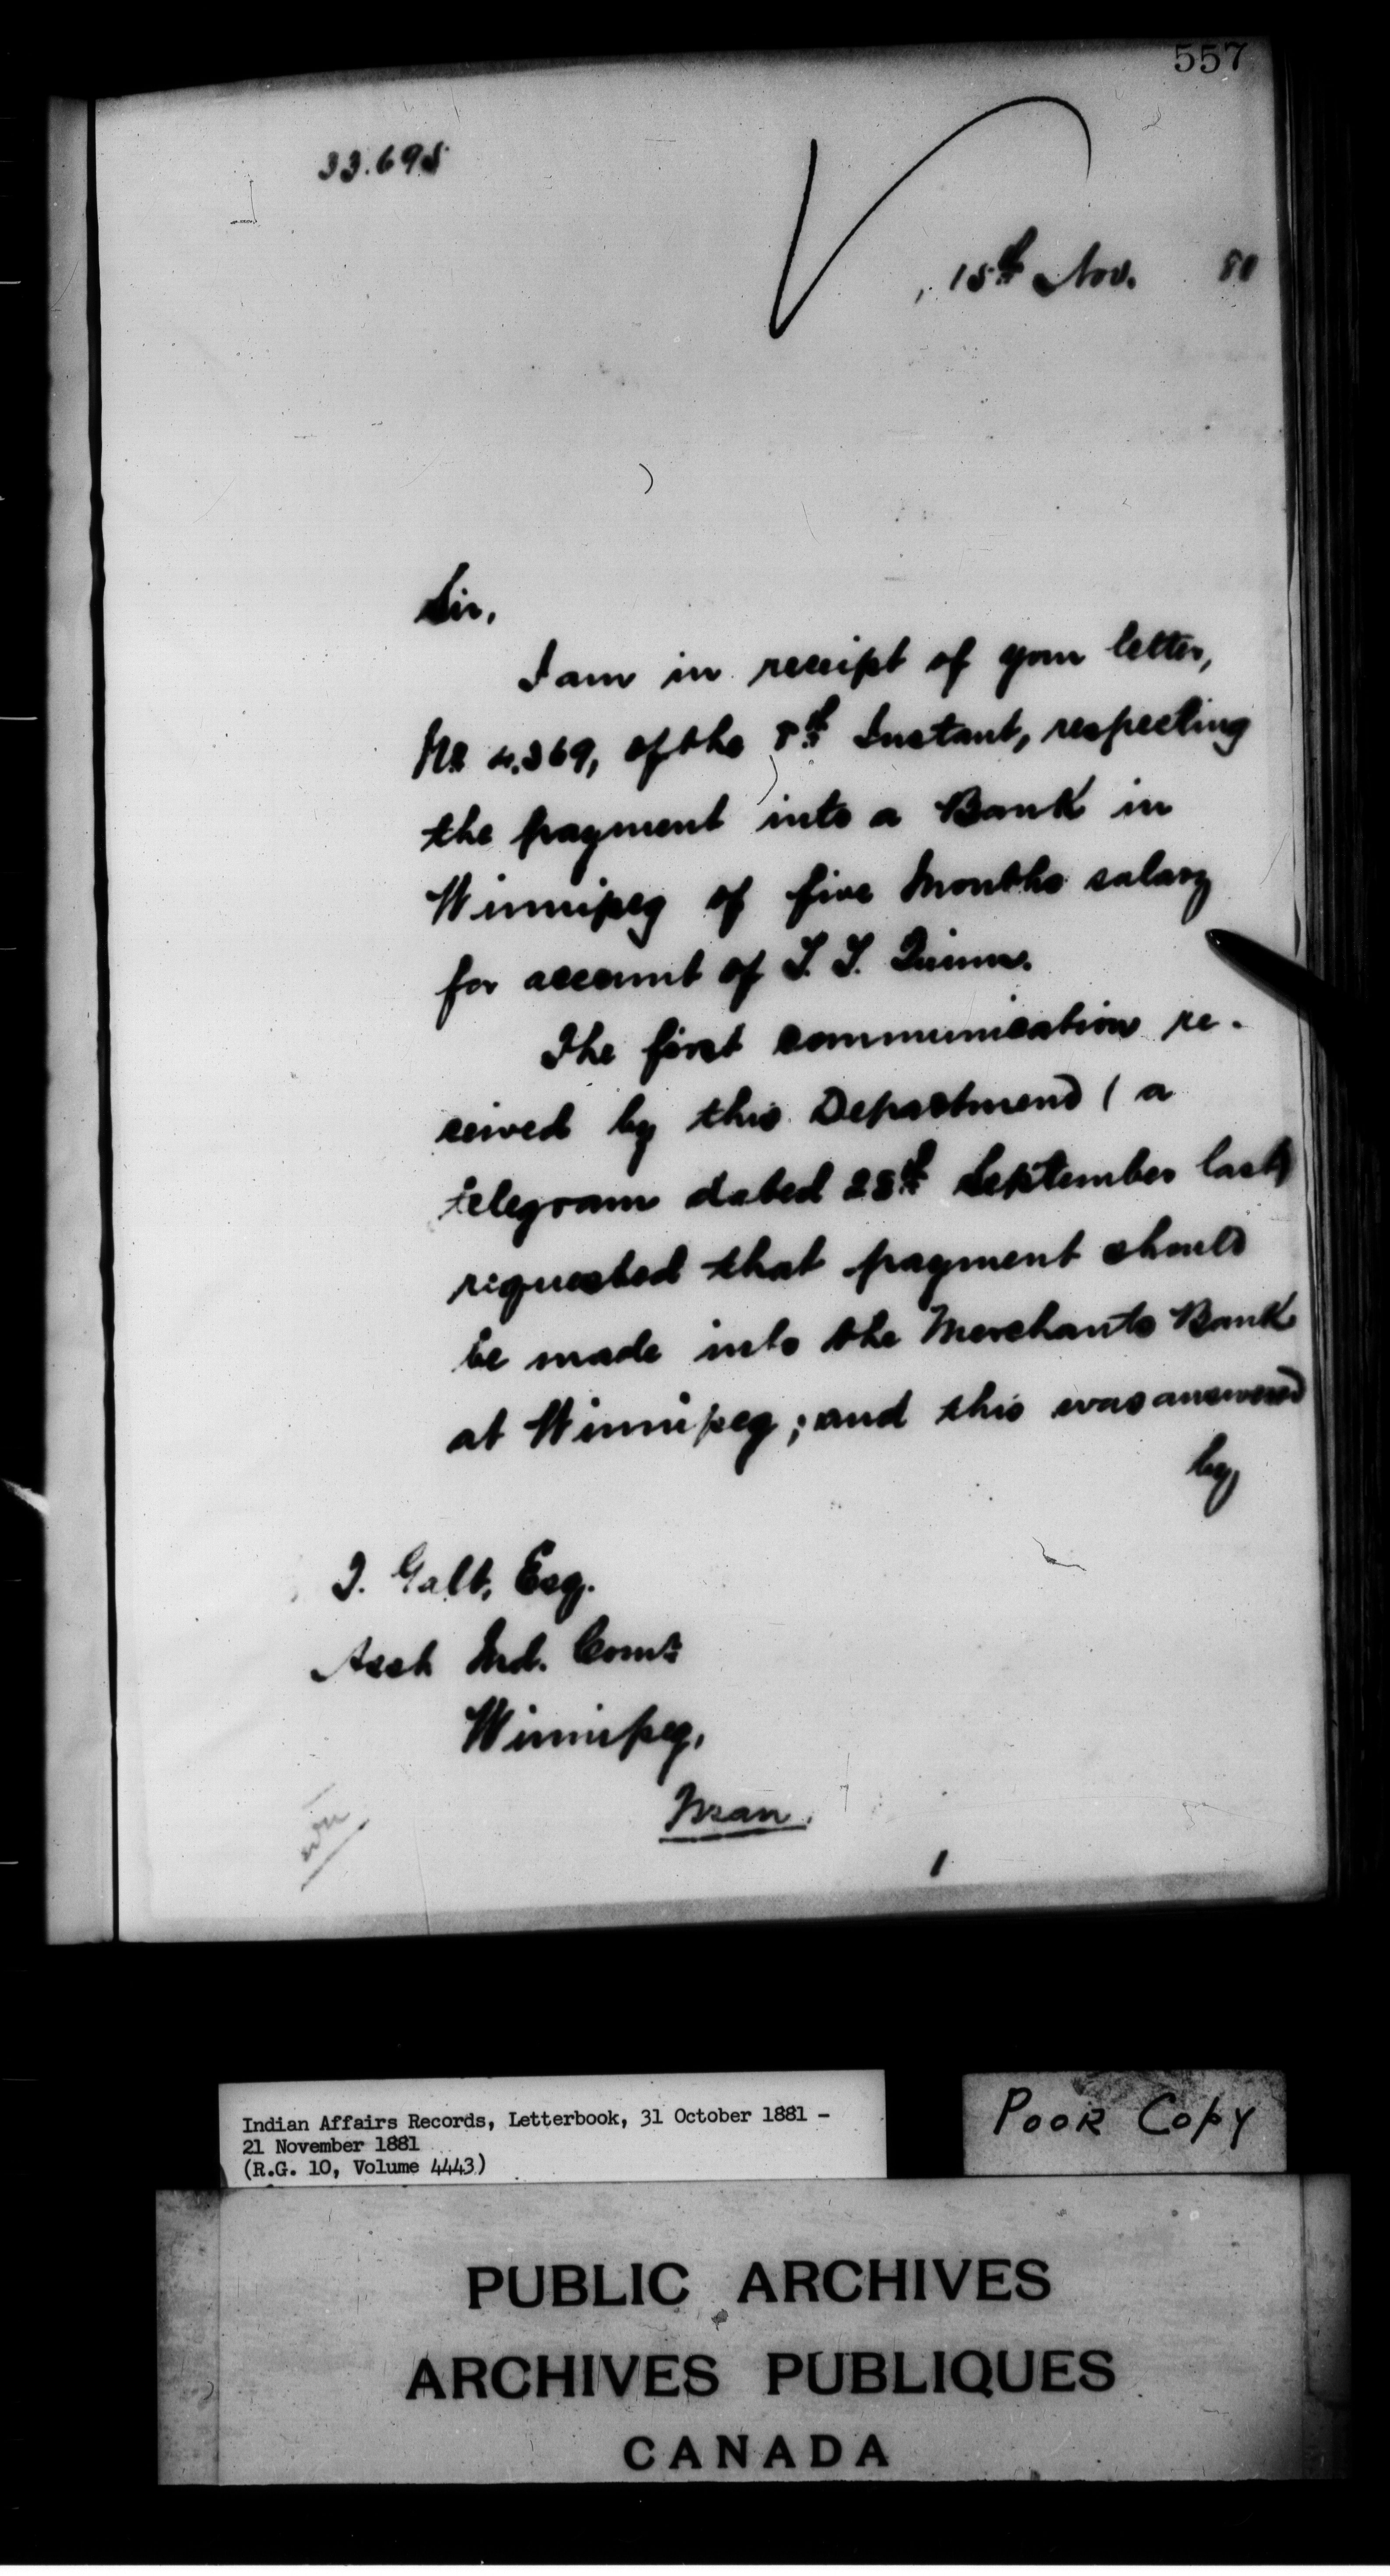 557
33.695
15th Nov. 81
Sir,
I am in receipt of your letter,
No 4.369, of the 8th Instant, respecting
the payment into a Bank in
Winnipeg of five Months salary
for account of T. T. Quinn.
The first communication re-
ceived by this Department (a
telegram dated 28th September last)
requested that payment should
be made into the Merchants Bank
at Winnipeg; and this was answered
by
Galt, Esq.
Asst Ind. Comr
Winnipeg,
Man.
Indian Affairs Records, Letterbook, 31 October 1881 -
21 November 1881
(R.G. 10, Volume 4443)
POOR COPY
PUBLIC ARCHIVES
ARCHIVES PUBLIQUES
CANADA